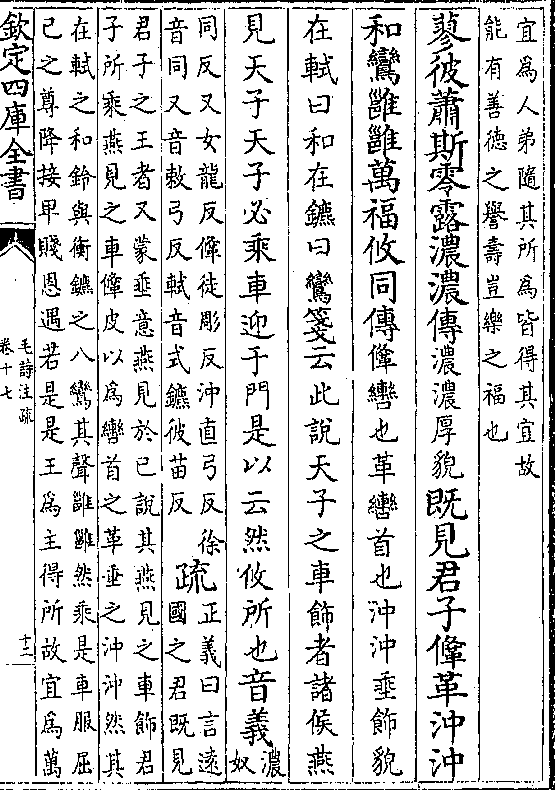 宜為人弟隨其所為皆得其宜故
能有善德之譽壽豈樂之福也
蓼彼蕭斯零露濃濃傳濃濃厚貌既見君子鞗革沖沖
和鸞雝雝萬福攸同傳鞗轡也革轡首也沖沖垂飾貌
在軾曰和在鑣曰鸞箋云此說天子之車飾者諸侯燕
見天子天子必乘車迎于門是以云然攸所也音義濃奴
同反又女龍反鞗徒彫反沖直弓反徐
音同又音敕弓反軾音式鑣彼苗反
疏正義曰言遠
國之君既見
君子之王者又蒙垂意燕見於已說其燕見之車飾君
子所乘燕見之車鞗皮以為轡首之革垂之沖沖然其
在軾之和鈴與衡鑣之八鸞其聲雝雝然乘是車服屈
已之尊降接卑賤恩遇若是是王為主得所故宜為萬
欽定四庫全書
毛詩注疏
卷十七
十二